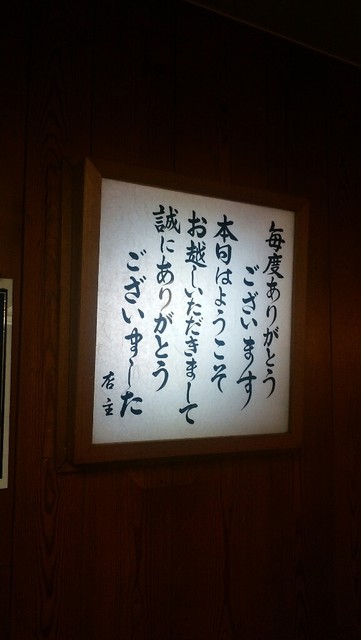 毎度ありがとう
ございます
本日はようこそ
お越しいただきまして
誠にありがとう
ございました
店主